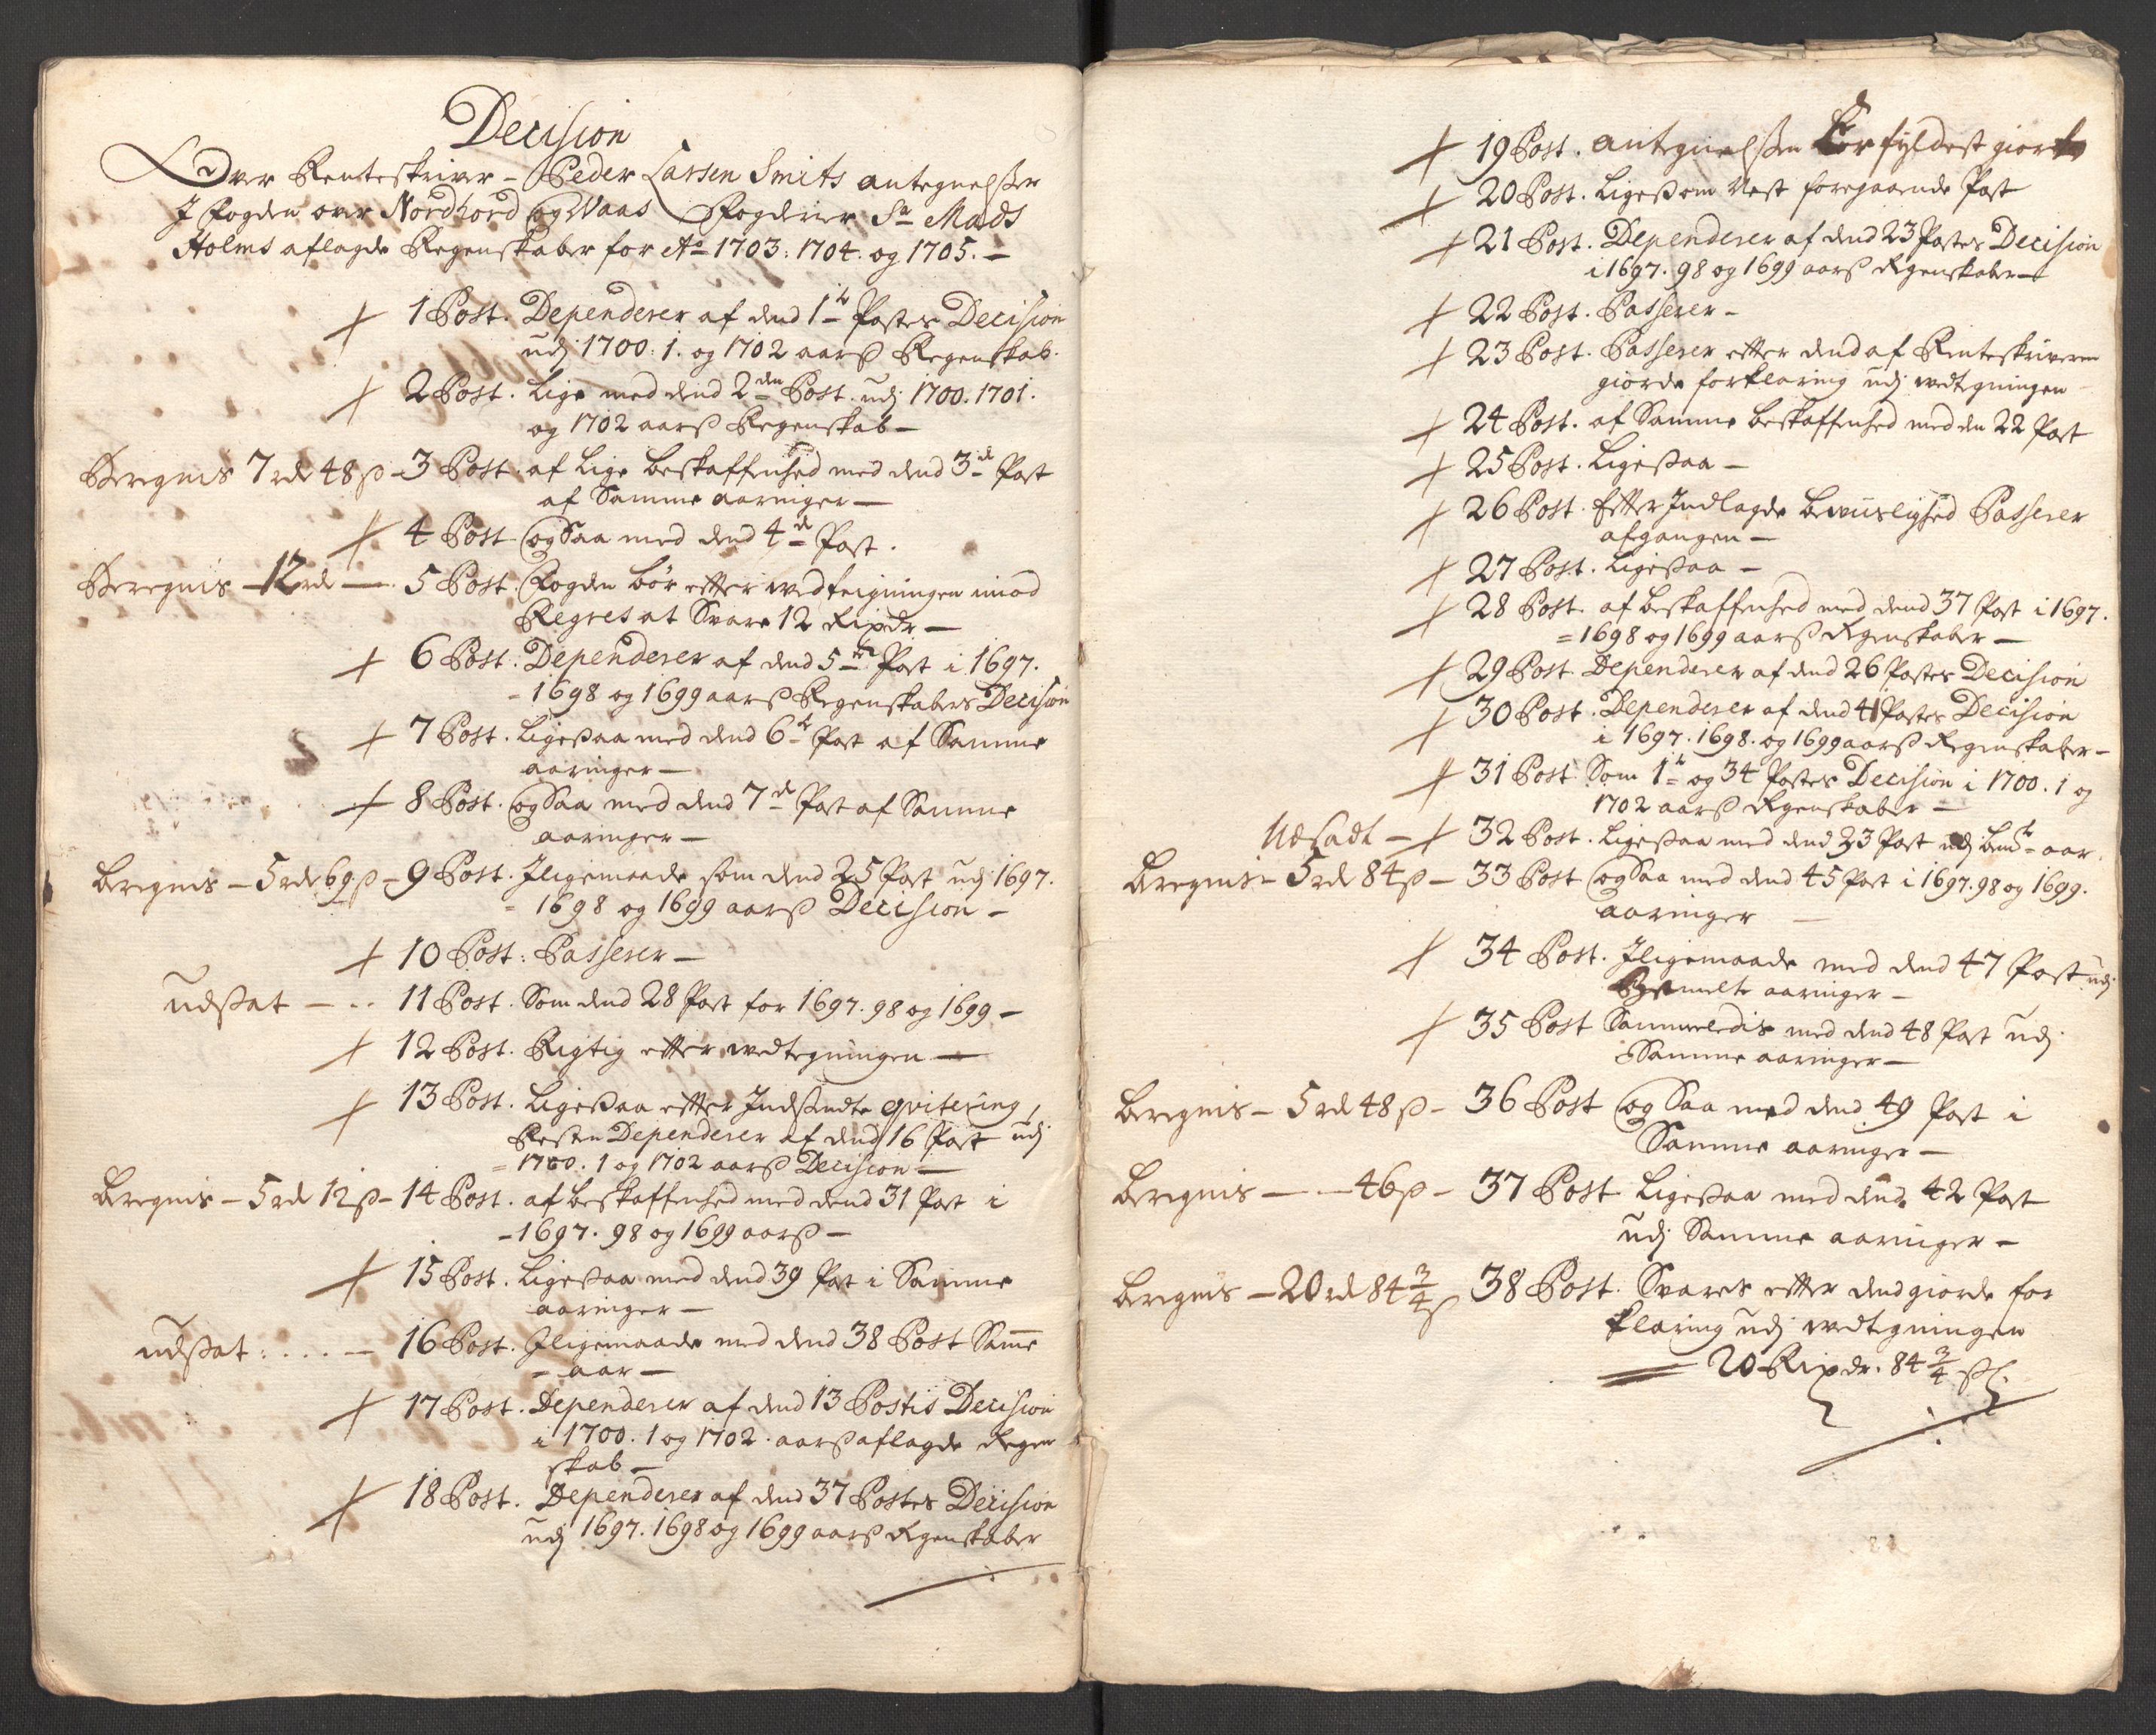 Decision
Over Renteskriver - Peder Larsen Smits antegnelsser
J Fogden over Nordhord og Waas Fogderier Sa Mads
Holms aflagde Regenskaber for Ao 1703: 1704. og 1705. —
+ 1 Post. Dependerer af dend 1te Postes Decision
udj 1700: 1. og 1702 aarß Regenskab.
+ 2 Post. Lige med dend 2den Post udj 1700. 1701.
og 1702 aarß Regenskab —
Beregnes 7 rdr 48 ß - 3 Post. af Lige beskaffenhed med dend 3de Post
af Samme aaringer —
+ 4 Post ogsaa med dend 4de Post.
Beregnes - 12 rdr —. 5 Post. Fogden bør efter wedtegningen imod
Regres at Svare 12 Rixdr —
+ 6 Post. Dependerer af dend 5te Post i 1697.
- 1698 og 1699 aarß Regenskabers Decision
+ 7 Post. Ligeßaa med dend 6te Post af Samme
aaringer —
+ 8 Post. ogsaa med dend 7de Post af Samme
aaringer —
Beregnes - 5 rdr 69 ß - 9 Post. Jligemaade som dend 25 Post udj 1697.
= 1698 og 1699 aarß Decision —
+ 10 Post: Passerer —
udßat - .. 11 Post. Som dend 28 Post for 1697. 98 og 1699 —
+ 12 Post. Rigtig efter wedtegningen —
+ 13 Post. Ligeßaa efter Jndsendte qvitering,
Resten Dependerer af dend 16 Post udj
= 1700. 1 og 1702 aarß Decision —
Beregnes - 5 rdr 12 ß - 14 Post. af beskaffenhed med dend 31 Post i
- 1697. 98 og 1699 aarß —
+ 15 Post. Ligeßaa med dend 39 Post i Samme
aaringer —
udßat: . . . — 16 Post. Jligemaade med dend 38 Post Samme
- aar —
+ 17 Post. Dependerer af dend 13 Postis Decision
i 1700. 1 og 1702. aarß aflagde Regen
skab —
+ 18 Post. Dependerer af dend 37 Postes Decision
udj 1697. 1698 og 1699 aarß Regenskaber
+ 19 Post. antegnelßen Er fyldest giort
+ 20 Post. Ligeßom Nest foregaaende Post
+ 21 Post. Dependerer af dend 23 Postes Decision
i 1697. 98 og 1699 aarß Regenskaber —
+ 22 Post. Passerer —
+ 23 Post. Passerer efter dend af Renteskriveren
giorde forklaring udj wedtegningen
+ 24 Post. af Samme beskaffenhed med den 22 Post
+ 25 Post. Ligeßaa —
+ 26 Post. Efter Jndlagde bewiislighed Passerer
afgangen —
+ 27 Post. Ligeßaa —
+ 28 Post. af beskaffenhed med dend 37 Post i 1697.
= 1698 og 1699 aarß Regenskaber —
+ 29 Post. Dependerer af dend 26 Postes Decision
+ 30 Post. Dependerer af dend 41 Postes Decision
i 1697. 1698. og 1699 aarß Regenskaber —
+ 31 Post. Som 1te og 34 Postes Decision i 1700. 1 og
1702 aarß Regenskaber —
Udsadt - + 32 Post. Ligeßaa med dend 23 Post udj aar.
Beregnes - 5 rdr 84 ß - 33 Post ogsaa med dend 45 Post i 1697. 98 og 1699.
aaringer —
+ 34 Post. Jligemaade med dend 47 Post udj
Bemelte aaringer —
+ 35 Post Sammeledis med dend 48 Post udj
Samme aaringer —
Beregnes - 5 rdr 48 ß - 36 Post ogsaa med dend 49 Post i
Samme aaringer —
Beregnes - — 46 ß - 37 Post Ligeßaa med dend 42 Post
udj Samme aaringer —
Beregnes - 20 rdr 84 3/4 ß 38 Post. Svares efter dend giorde for
klaring udj wedtegningen
— 20 Rixdr. 84 3/4 ßl.